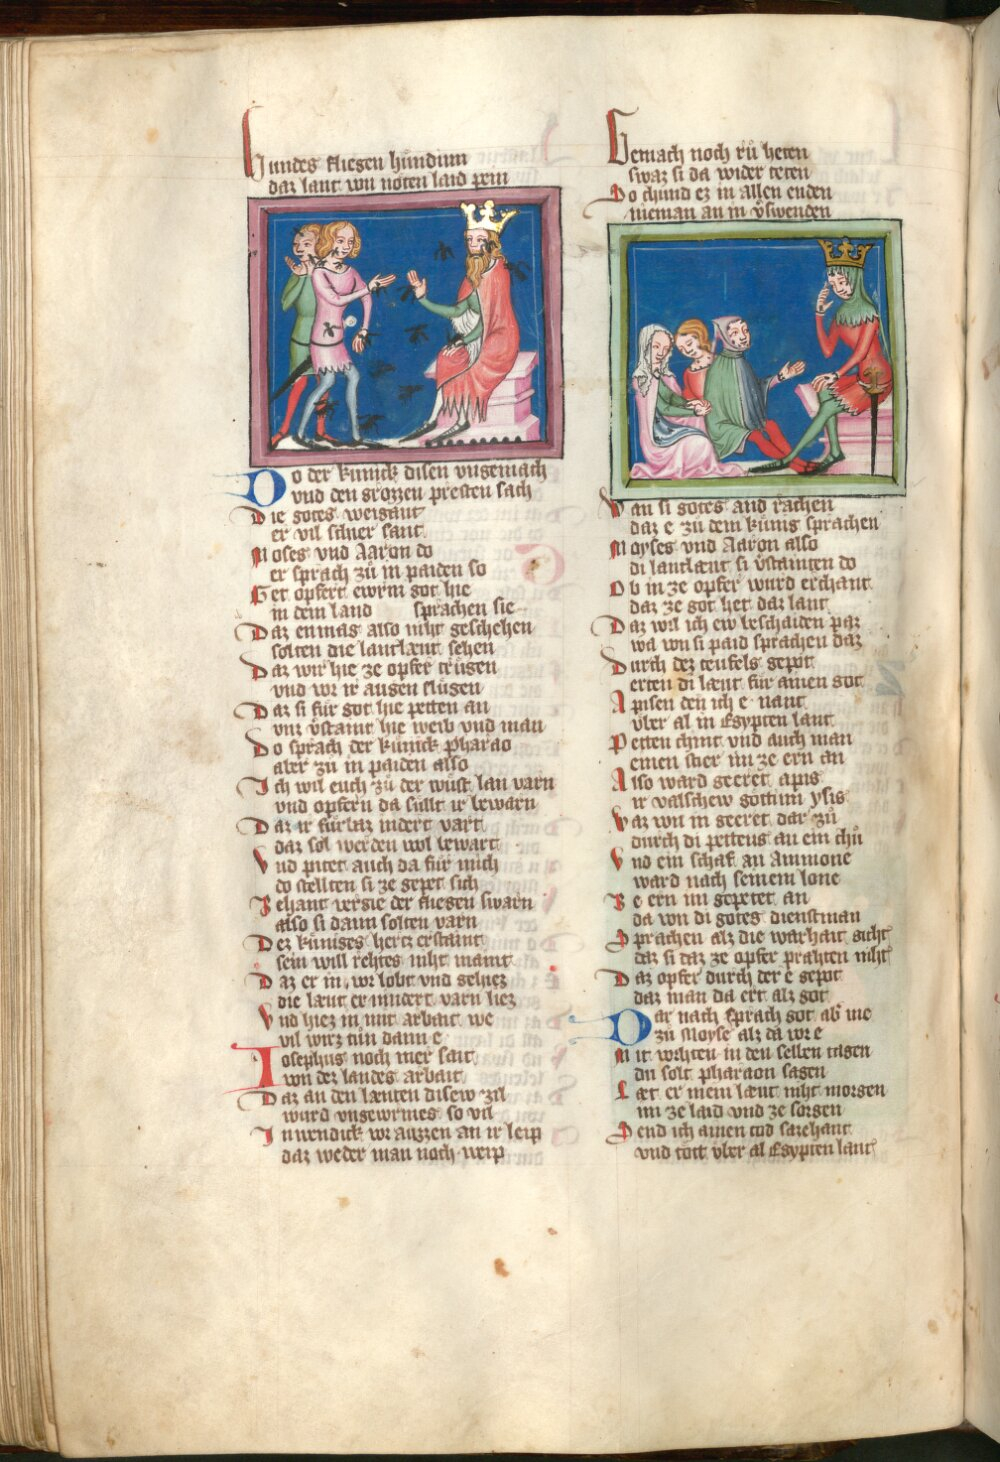 Hundes fliegen hundinn
daz lant von nöten laid pein
Do der kunick disen vngemach
vnd den grozzen presten sach
Die gotes weigant
er vil schier sant
Moses vnd Aaron do
er sprach zů in paiden so
Get opfert ewrm got hie
in dem land sprachen sie
Daz enmag also niht geschehen
solten die lantlæut sehen
Daz wir hie ze opfer trůgen
vnd vor ir augen slůgen
Daz si für got hie petten an
vnz v̊staint hie weib vnd man
Do sprach der kunick Pharao
aber zů in paiden also
Ich wil euch zů der wůst lan varn
vnd opfern da süllt ir bewarn
Daz ir fürbaz indert vart
daz sol werden wol bewart
Vnd pitet auch da für mich
do stellten si ze gepet sich
Zehant vergie der fliegen swarn
also si dann solten varn
Dez küniges hertz erstaint
sein will rehtes niht maint
Daz er in vor lobt vnd gehiez
die læut er nindert varn liez
Vnd hiez in mit arbait we
vil wirz tün dann e
Iosephus noch mer sait
von dez landes arbait
Daz an den læuten disew zil
wurd vngewrmes so vil
Inwendick vor auzzen an ir leip
daz weder man noch weip
Gemach noch rů heten
swaz si da wider teten
Do chund ez in allen enden
nieman an in v̊swenden
Wan si gotes and rächen
daz e zů dem künig sprachen
Moyses vnd Aaron also
di lantlæut si v̊stainten do
Ob in ze opfer wurd erchant
daz ze got het daz lant
Daz wil ich ew beschaiden paz
wa von si paid sprachen daz
Durch dez teufels gepot
erten di læut für ainen got
Apisen den ich e nant
vber al in Egypten lant
Petten chint vnd auch man
einen stier im ze ern an
Also ward geeret apis
ir valschew göttinn ysis
Waz von in geeret dar zů
durch di pettens an ein chů
Vnd ein schaf an Ammone
ward nach seinem lone
Ze ern im gepetet an
da von di gotes dienstman
Sprachen alz die warhait giht
daz si daz ze opfer prahten niht
Daz opfer durch der e gepot
daz man da ert alz got
Dar nach sprach got ab me
zů Moyse alz da vor e
Mit worten in den selben tagen
du solt pharaon sagen
Læt er mein læut niht morgen
im ze laid vnd ze sorgen
Send ich ainen tod sazehant
vnd tött vber al Egypten lant